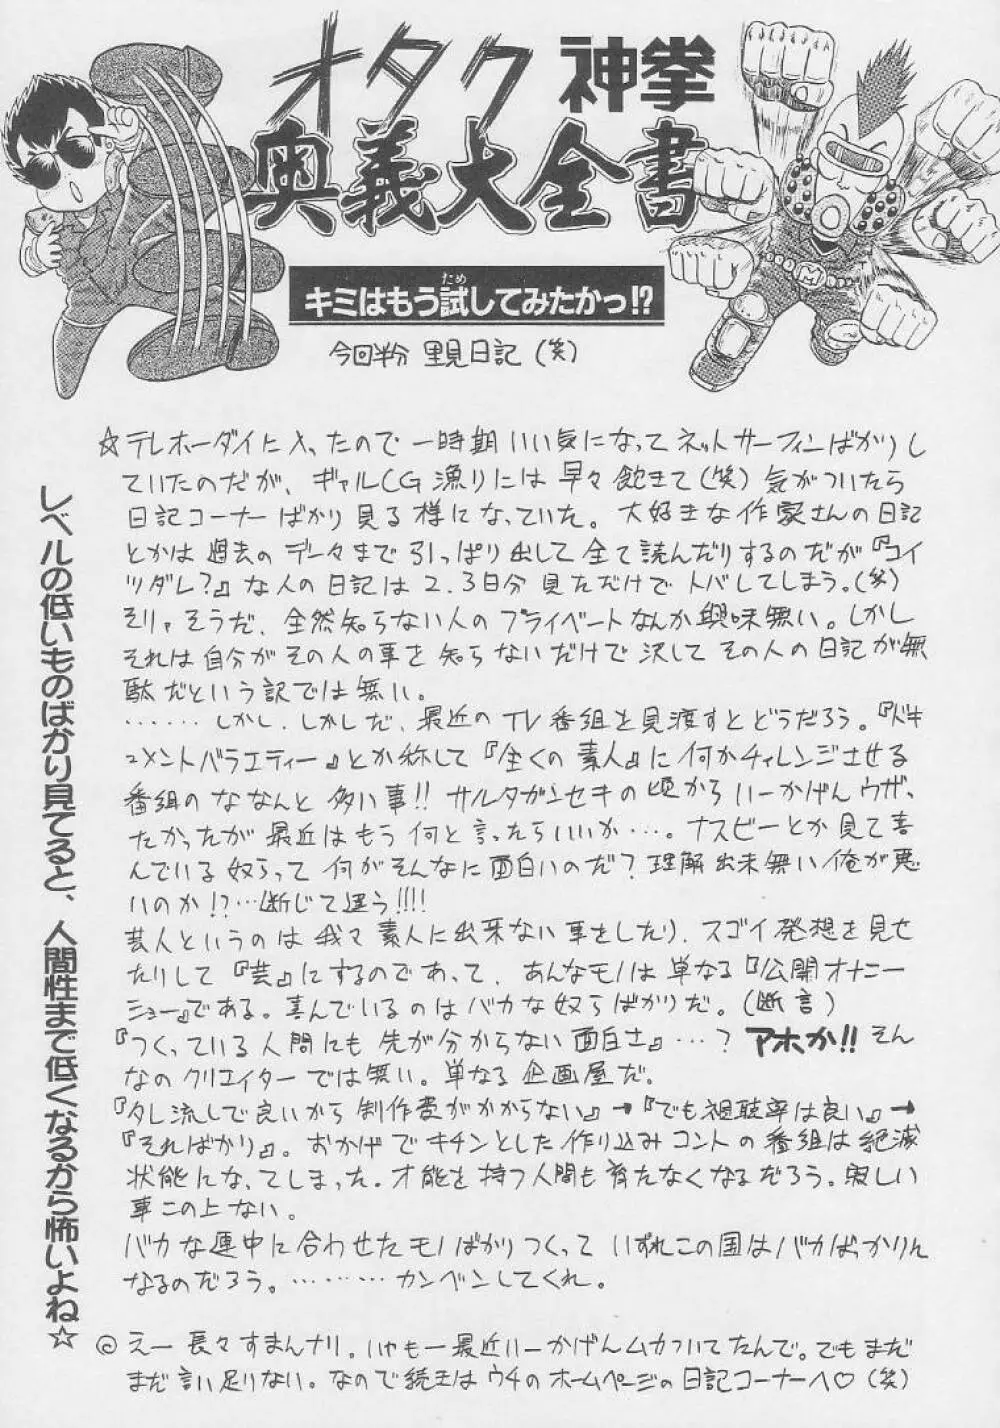 オタク神拳
奥義大全書
キミはもう試してみたかっ!?
ため
今回半分 里見日記(笑)
レベルの低いものばかり見てると、人間性まで低くなるから怖いよね☆
☆テレホーダイに入ったので一時期いい気になってネットサーフィンばかりし
ていたのだが、ギャルCG漁りには早々飽きて(笑)気がついたら
日記コーナーばかり見る様になっていた。大好きな作家さんの日記
とかは過去のデータまで引っぱり出して全て読んだりするのだが『コイ
ツダレ?』な人の日記は2.3日分見ただけでトバしてしまう。(笑)
そりゃそうだ、全然知らない人のプライベートなんか興味無い。しかし
それは自分がその人の事を知らないだけで決してその人の日記が無
駄だという訳では無い。
……しかし、しかしだ、最近のTV番組を見渡すとどうだろう。『ドキ
ュメントバラエティー』とか称して『全くの素人』に何かチャレンジさせる
番組のななんと多い事!!サルガンセキの頃からいーかげんウザ
たかったが最近はもう何と言ったらいいか…。ナスビーとか見て喜
んでいる奴らって何がそんなに面白いのだ?理解出来無い俺が悪
いのか!?…断じて違う!!!!
芸人というのは我々素人に出来ない事をしたり、スゴイ発想を見せ
たりして『芸』にするのであって、あんなモノは単なる『公開オナニー
ショー』である。喜んでいるのはバカな奴らばかりだ。(断言)
『つくっている人間にも先が分からない面白さ』…?アホか!!そん
なのクリエイターでは無い。単なる企画屋だ。
『タレ流しで良いから制作費がかからない』→『でも視聴率は良い』→
『そればかり』。おかげでキチンとした作り込みコントの番組は絶滅
状態になってしまった。才能を持つ人間も育たなくなるだろう。寂しい
事この上ない。
バカな連中に合わせたモノばかりつくっていずれこの国はバカばっかりん
なるのだろう。………カンベンしてくれ。
◎えー長々すまんナリ。いやもー最近いーかげんムカついてたんで。でもまだ
まだ言い足りない。なので続きはウチのホームページの日記コーナーへ♡(笑)
M